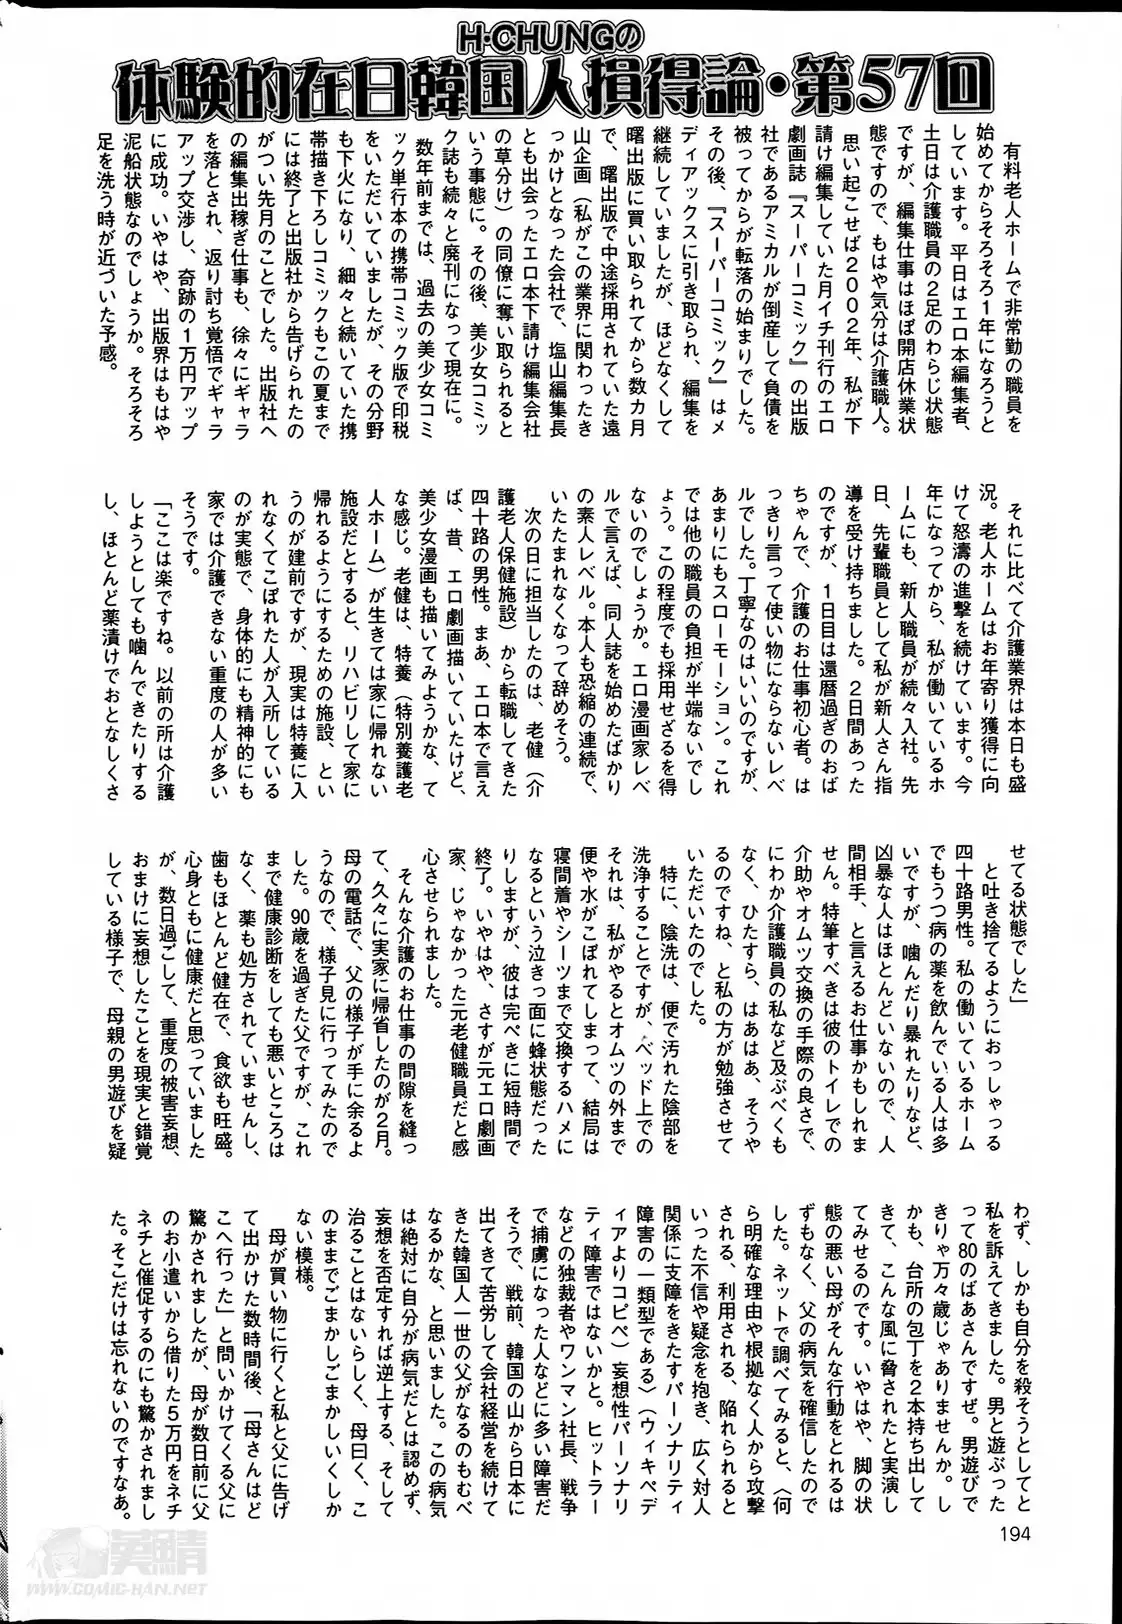 H・CHUNGの
体験的在日韓国人損得論・第57回
有料老人ホームで非常勤の職員を
始めてからそろそろ1年になろうと
しています。平日はエロ本編集者、
土日は介護職員の2足のわらじ状態
ですが、編集仕事はほぼ開店休業状
態ですので、もはや気分は介護職人。
思い起こせば2002年、私が下
請け編集していた月イチ刊行のエロ
劇画誌『スーパーコミック』の出版
社であるアミカルが倒産して負債を
被ってからが転落の始まりでした。
その後、『スーパーコミック』はメ
ディアックスに引き取られ、編集を
継続していましたが、ほどなくして
曙出版に買い取られてから数カ月
で、曙出版で中途採用されていた遠
山企画(私がこの業界に関わったき
っかけとなった会社で、塩山編集長
とも出会ったエロ本下請け編集会社
の草分け)の同僚に奪い取られると
いう事態に。その後、美少女コミッ
ク誌も続々と廃刊になって現在に。
数年前までは、過去の美少女コミ
ック単行本の携帯コミック版で印税
をいただいていましたが、その分野
も下火になり、細々と続いていた携
帯描き下ろしコミックもこの夏まで
には終了と出版社から告げられたの
がつい先月のことでした。出版社へ
の編集出稼ぎ仕事も、徐々にギャラ
を落とされ、返り討ち覚悟でギャラ
アップ交渉し、奇跡の1万円アップ
に成功。いやはや、出版界はもはや
泥船状態なのでしょうか。そろそろ
足を洗う時が近づいた予感。
それに比べて介護業界は本日も盛
況。老人ホームはお年寄り獲得に向
けて怒濤の進撃を続けています。今
年になってから、私が働いているホ
ームにも、新人職員が続々入社。先
日、先輩職員として私が新人さん指
導を受け持ちました。2日間あった
のですが、1日目は還暦過ぎのおば
ちゃんで、介護のお仕事初心者。は
っきり言って使い物にならないレベ
ルでした。丁寧なのはいいのですが、
あまりにもスローモーション。これ
では他の職員の負担が半端ないでし
ょう。この程度でも採用せざるを得
ないのでしょうか。エロ漫画家レベ
ルで言えば、同人誌を始めたばかり
の素人レベル。本人も恐縮の連続で、
いたたまれなくなって辞めそう。
次の日に担当したのは、老健(介
護老人保健施設)から転職してきた
四十路の男性。まあ、エロ本で言え
ば、昔、エロ劇画描いていたけど、
美少女漫画も描いてみようかな、て
な感じ。老健は、特養(特別養護老
人ホーム)が生きては家に帰れない
施設だとすると、リハビリして家に
帰れるようにするための施設、とい
うのが建前ですが、現実は特養に入
れなくてこぼれた人が入所している
のが実態で、身体的にも精神的にも
家では介護できない重度の人が多い
そうです。
「ここは楽ですね。以前の所は介護
しようとしても噛んできたりする
し、ほとんど薬漬けでおとなしくさ
せてる状態でした」
と吐き捨てるようにおっしゃる
四十路男性。私の働いているホーム
でもうつ病の薬を飲んでいる人は多
いですが、噛んだり暴れたりなど、
凶暴な人はほとんどいないので、人
間相手、と言えるお仕事かもしれま
せん。特筆すべきは彼のトイレでの
介助やオムツ交換の手際の良さで、
にわか介護職員の私など及ぶべくも
なく、ひたすら、はあはあ、そうや
るのですね、と私の方が勉強させて
いただいたのでした。
特に、陰洗は、便で汚れた陰部を
洗浄することですが、ベッド上での
それは、私がやるとオムツの外まで
便や水がこぼれてしまって、結局は
寝間着やシーツまで交換するハメに
なるという泣きっ面に蜂状態だった
りしますが、彼は完ぺきに短時間で
終了。いやはや、さすが元エロ劇画
家、じゃなかった元老健職員だと感
心させられました。
そんな介護のお仕事の間隙を縫っ
て、久々に実家に帰省したのが2月。
母の電話で、父の様子が手に余るよ
うなので、様子見に行ってみたので
した。90歳を過ぎた父ですが、これ
まで健康診断をしても悪いところは
なく、薬も処方されていませんし、
歯もほとんど健在で、食欲も旺盛。
心身ともに健康だと思っていました
が、数日過ごして、重度の被害妄想、
おまけに妄想したことを現実と錯覚
している様子で、母親の男遊びを疑
わず、しかも自分を殺そうとしてと
私を訴えてきました。男と遊ぶった
って80のばあさんですぜ。男遊びで
きりゃ万々歳じゃありませんか。し
かも、台所の包丁を2本持ち出して
きて、こんな風に脅されたと実演し
てみせるのです。いやはや、脚の状
態の悪い母がそんな行動をとれるは
ずもなく、父の病気を確信したので
した。ネットで調べてみると、〈何
ら明確な理由や根拠なく人から攻撃
される、利用される、陥れられると
いった不信や疑念を抱き、広く対人
関係に支障をきたすパーソナリティ
障害の一類型である〉(ウィキペデ
ィアよりコピペ)妄想性パーソナリ
ティ障害ではないかと。ヒットラー
などの独裁者やワンマン社長、戦争
で捕虜になった人などに多い障害だ
そうで、戦前、韓国の山から日本に
出てきて苦労して会社経営を続けて
きた韓国人一世の父がなるのもむべ
なるかな、と思いました。この病気
は絶対に自分が病気だとは認めず、
妄想を否定すれば逆上する、そして
治ることはないらしく、母曰く、こ
のままでごまかしごまかしいくしか
ない模様。
母が買い物に行くと私と父に告げ
て出かけた数時間後、「母さんはど
こへ行った」と問いかけてくる父に
驚かされましたが、母が数日前に父
のお小遣いから借りた5万円をネチ
ネチと催促するのにも驚かされまし
た。そこだけは忘れないのですなあ。
194
英鯖
WWW.COMIC-HAN.NET